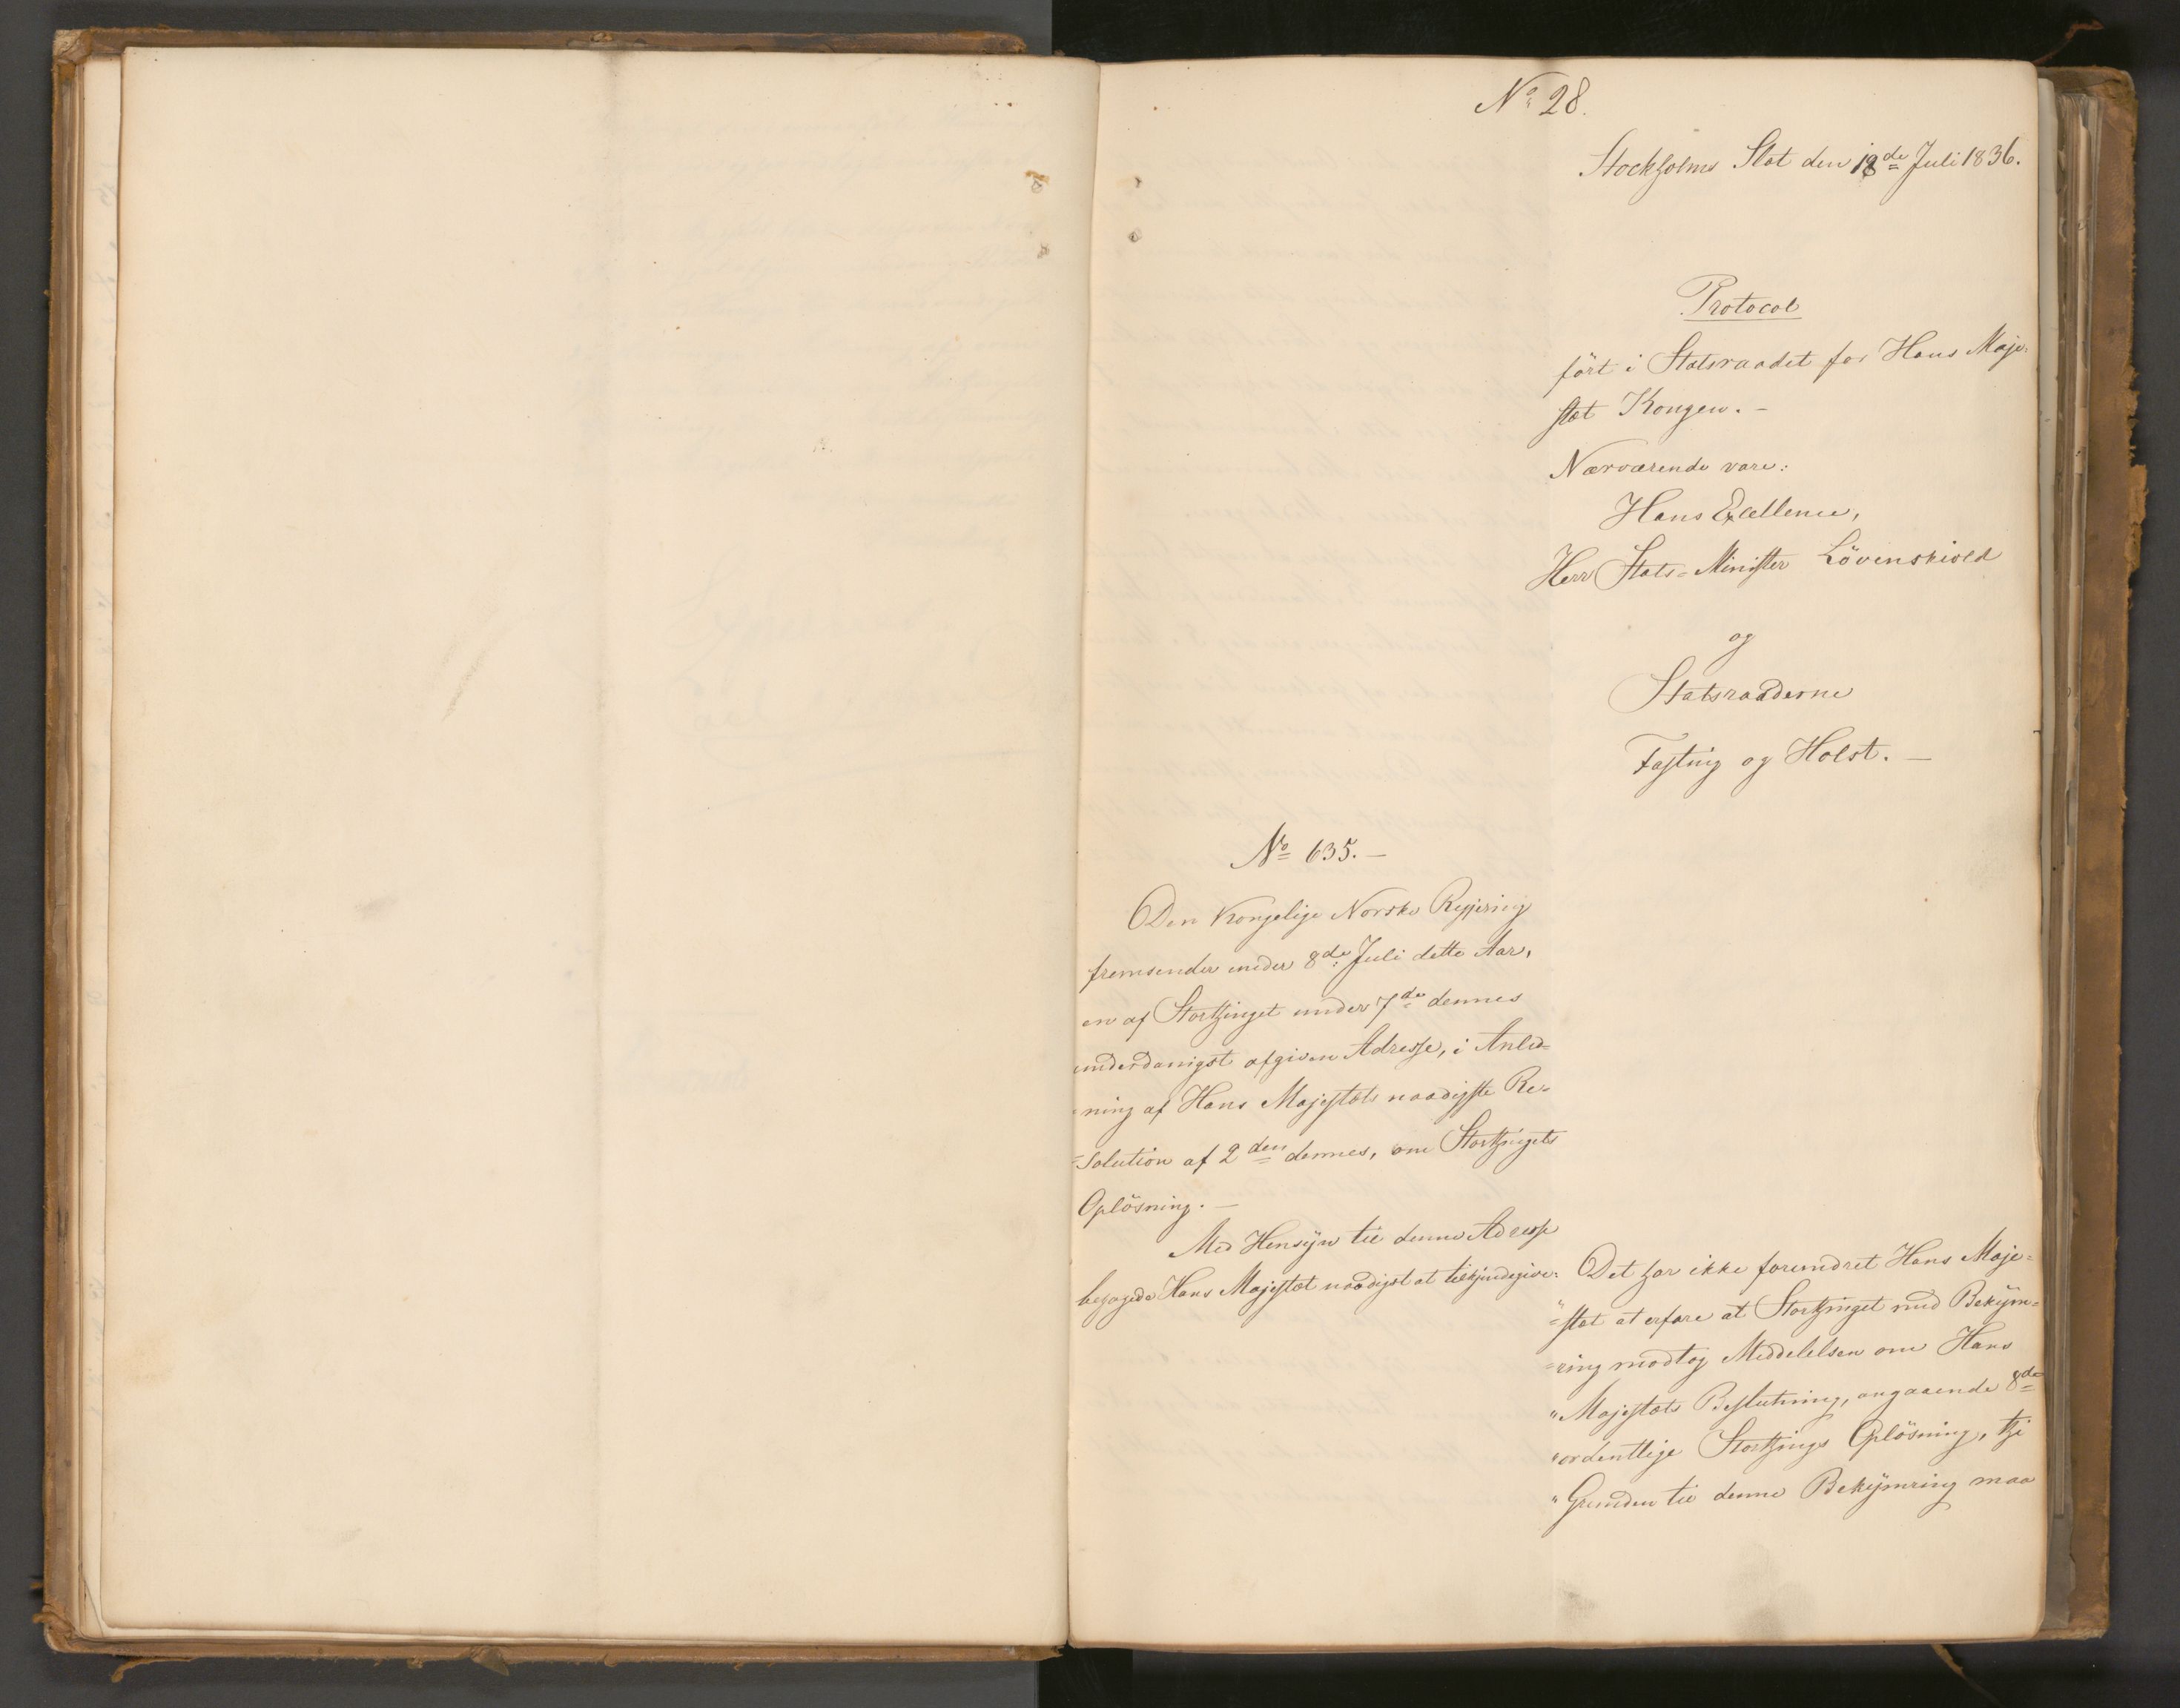 No 28.
Stockholms Slot den 18de Juli 1836.
Protocol
ført i Statsraadet for Hans Maje-
stæt Kongen. -
Nærværende vare:
Hans Excellence,
Herr Stats-Minister Lövenskiold
og
Statsraaderne
Fasting og Holst. -
No 635. -
Den Kongelige Norske Regjering
fremsender under 8de Juli dette Aar,
en af Storthinget under 7de dennes
underdanigst afgiven Adresse, i Anled-
-ning af Hans Majestæts naadigste Re-
-solution af 2den dennes, om Storthingets
Oplösning. -
Med Hensyn til denne Adresse
behagede Hans Majestæt naadigst at tilkjendegive:
Det har ikke forundret Hans Maje-
"-stæt at erfare at Storthinget med Bekym-
-ring modtog Meddelelsen om Hans
"Majestæts Beslutning, angaaende 8de
"ordentlige Storthings Oplösning, thi
"Grunden til denne Bekymring maa